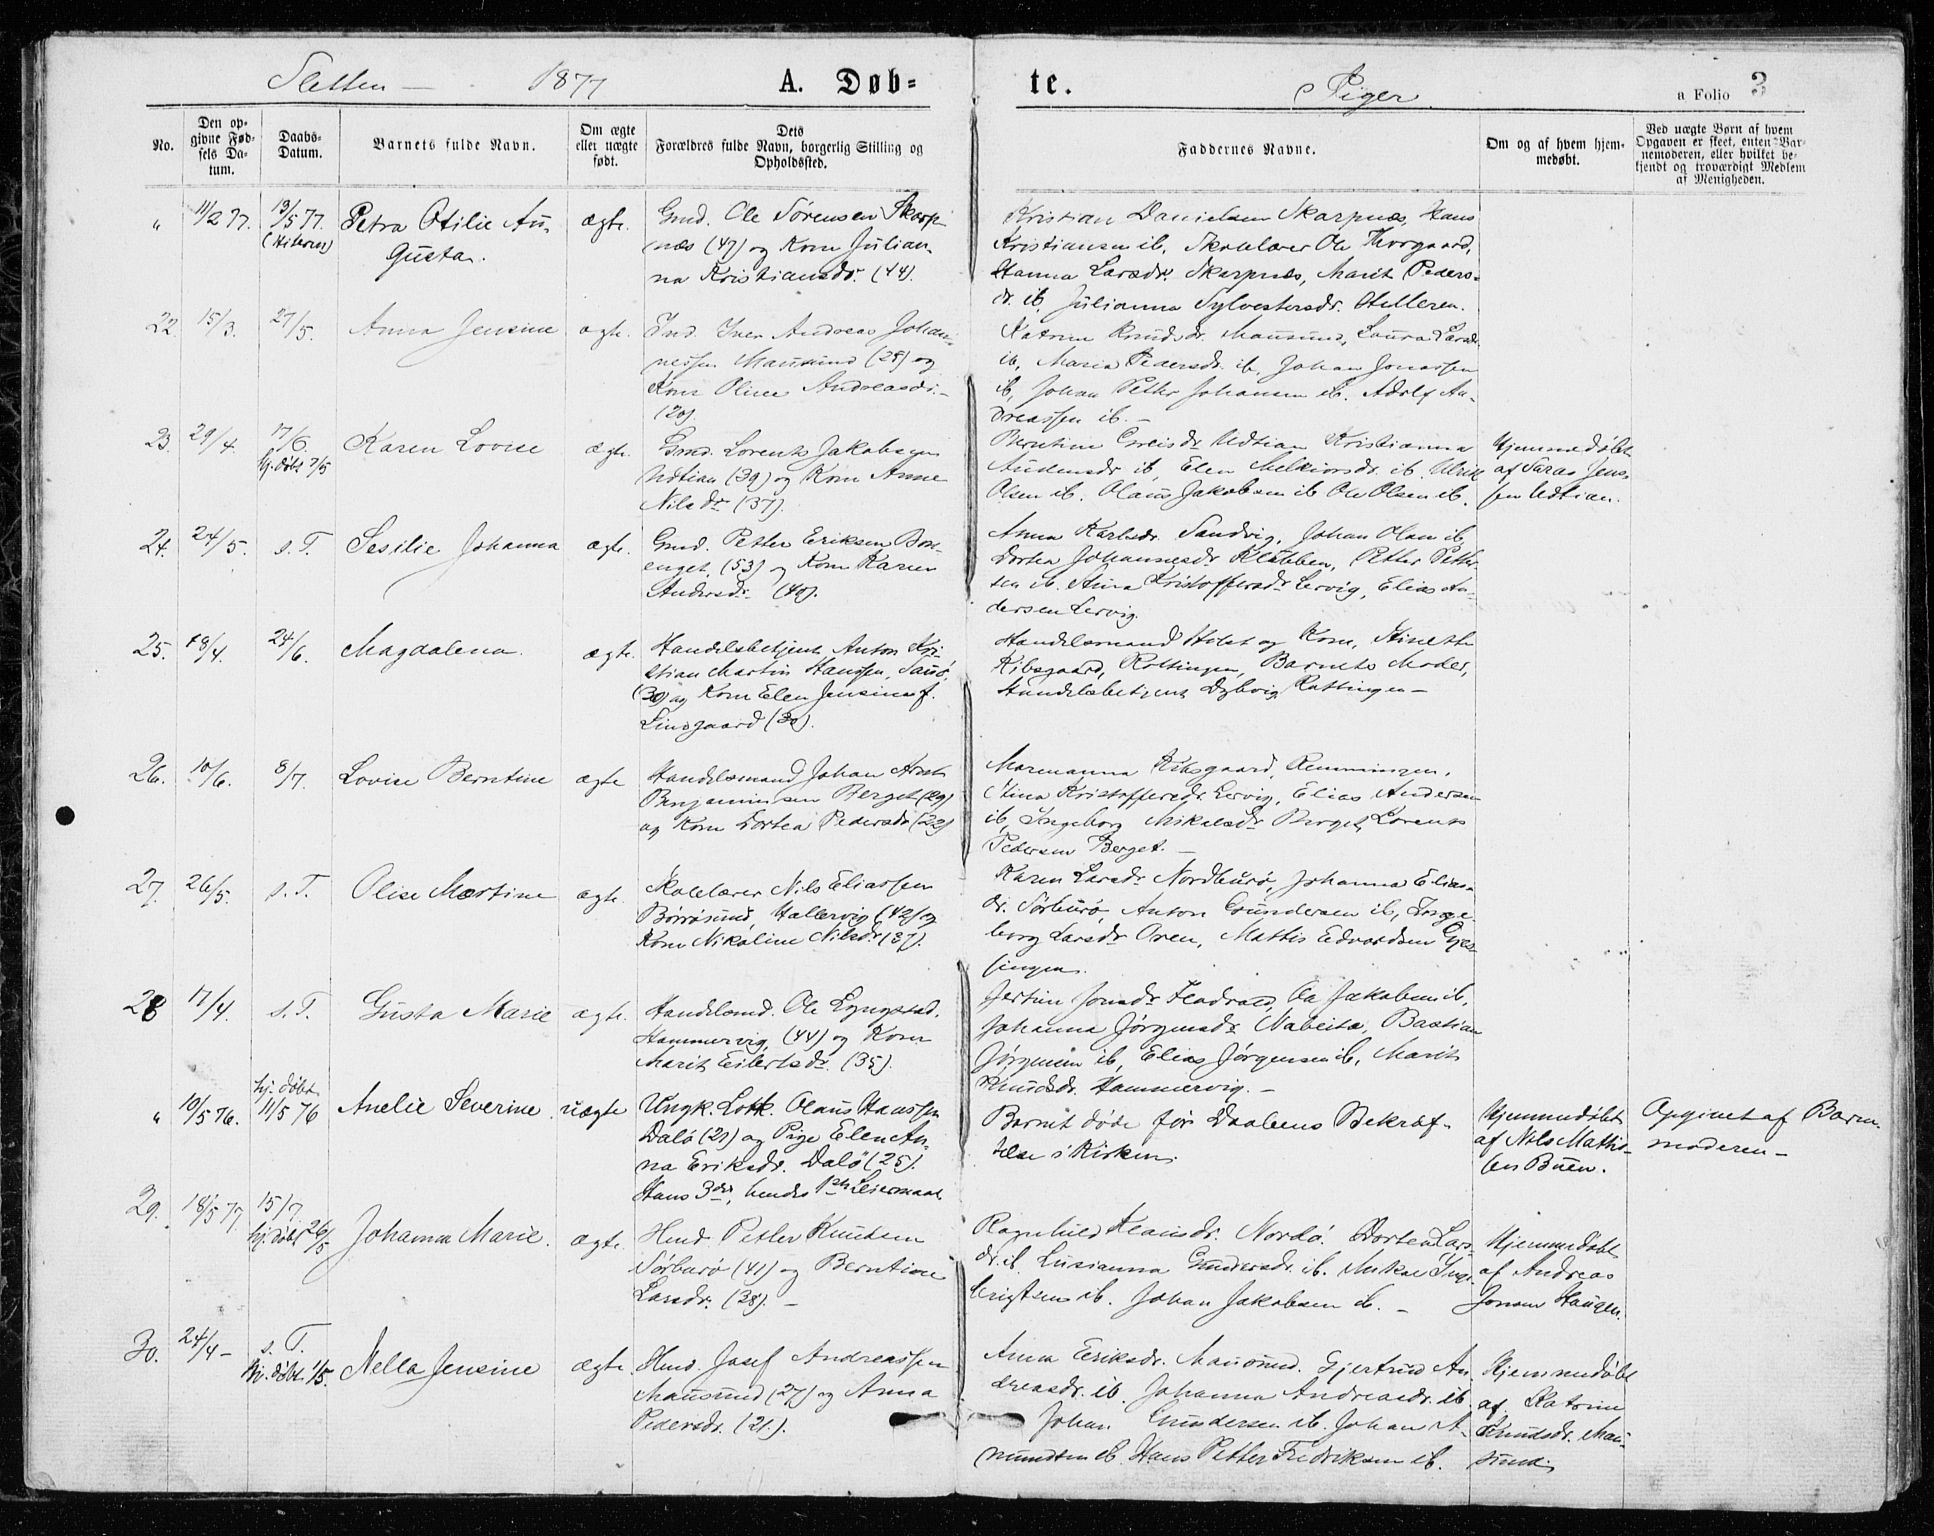 Sletten — 1877 A. Døb= te. Piger. a Folio 3
No.
Den op-
givne Fød-
sels Da-
tum.
Daabs-
Datum.
Barnets fulde Navn.
Om ægte
eller uægte
født.
Dets
Forældres fulde Navn, borgerlig Stilling og
Opholdssted.
Faddernes Navne.
Om og af hvem hjem-
medøbt.
Ved uægte Børn af hvem
Opgaven er skeet, enten Bar-
nemoderen, eller hvilket be-
kjendt og troværdigt Medlem
af Menigheden.
" 11/2 77. 13/5 77.
(Hitteren)
Petra Otilie Au-
gusta.
ægte.
Gmd. Ole Sörensen Skarp-
næs (47) og Kone Julian-
na Kristiansdr. (44).
Kristian Danielsen Skarpnæs, Hans
Kristiansen ib, Skolelærer Ole Thorgaard,
Hanna Larsdr. Skarpnæs, Marit Peders-
dr. ib, Julianna Sylvestersdr. Helleren.
22 15/3. 27/5. Anna Jensine ægte.
Ind. Iver Andreas Johan-
nessen Mausund (28) og
Kone Oline Andreasdr. -
(20).
Katrine Knudsdr. Mausund, Laura Larsdr.
ib, Maria Pedersdr. ib, Johan Jonassen
ib, Johan Petter Johansen ib. Adolf An-
dreassen ib. -
23. 29/4. 17/6.
hj. døbt 7/5
Karen Lovise ægte.
Gmd. Lorents Jakobsen
Udtian (39) og Kone Anne
Nilsdr (37).
Berntine Greisdr Udtian Kristianna
Andersdr ib, Elen Melkiorsdr. ib. Ulrik
Olsen ib. Olaus Jakobsen ib Ole Olsen ib.
Hjemmedøbt
af Saras Jens-
sen Udtian.
24. 24/5. s. T. Sesilie Johanna ægte.
Gmd. Petter Eriksen Bos-
enget (53) og Kone Karen
Andersdr. (40).
Anna Karlsdr. Sandvig, Johan Olsen ib,
Dortea Johannesdr Klubben, Petter Petter-
sen ib. Anna Kristoffersdr Lervig, Elias An-
dersen Lervig.
25. 18/4. 24/6. Magdalena. ægte.
Handelsbetjent Anton Kri-
stian Martin Hanssen, Sauö,
(30) og Kone Elen Jensine f.
Lindgaard (30).
Handelsmand Holst og Kone, Stinette
Kibsgaard, Rottingen, Barnets Moder,
Handelsbetjent Dybvig Rottingen —
26. 10/6. 8/7. Lovise Berntine ægte
Handelsmand Johan Arnt
Benjaminsen Berget (29)
og Kone Dortea Pedersdr (22)
Marianna Kibsgaard,
Anna Kristoffersdr. Lervig, Elias Andersen
ib, Ingeborg Mikalsdr Berget, Lorents
Pedersen Berget. —
27. 26/5. s. T. Olise Martine ægte.
Skolelærer Nils Eliassen
Börösund, Hallervig (42) og
Kone Nikoline Nilsdr. (37).
Karen Larsdr. Nordburö, Johanna Elias-
dr. Sörburö, Anton Gundersen ib, Inge-
borg Larsdr Oren, Mattis Edvardsen Gjæs-
singen.
28 17/4. s. T. Gusta Marie ægte.
Handelsmd. Ole Lyngstad,
Hammervig, (44) og Kone
Marit Eilertsdr. (35).
Jertine Jonsdr. Fladvad, Ole Jakobsen ib,
Johanna Jörgensdr. Nabeita, Bastian
Jörgensen ib, Elias Jörgensen ib, Marit
Knudsdr. Hammervig. —
" 10/5 76. hj. döbt
11/5 76
Anelie Severine. uægte
Ungk. Losk. Olaus Hanssen
Dalö (21) og Pige Elen An-
na Eriksdr. Dalö (25).
Hans 3die, hendes 1ste Leiermaal
Barnet døde før Daabens Bekræf-
telse i Kirken.
Hjemmedøbt
af Nils Mathis-
sen Buen.
Opgivet af Barne-
moderen —
29. 18/5 77. 15/7.
hj. døbt 26/5
Johanna Marie. ægte.
Hmd. Petter Knudsen
Sörburö (41) og Berntine
Larsdr. (38). —
Ragnhild Klausdr. Nordö. Dortea Lars-
dr. ib. Lusianna Gundersdr. ib. Mikal Inge-
brigtsen ib. Johan Jakobsen ib. —
Hjemmedøbt
af Andreas
Jonsen Haugen.
30. 24/4 — s. T.
hj. døbt 1/5.
Nella Jensine ægte.
Hmd. Josef Andreassen
Mausund (27) og Anna
Pedersdr. (21).
Anna Eriksdr. Mausund. Gjertrud An-
dreasdr. ib. Johanna Andreasdr. ib.
Johan Gundersen ib. Johan A-
mundsen ib. Hans Petter Fredriksen ib.
Hjemmedøbt
af Katrine
Knudsdr. Mau-
sund.